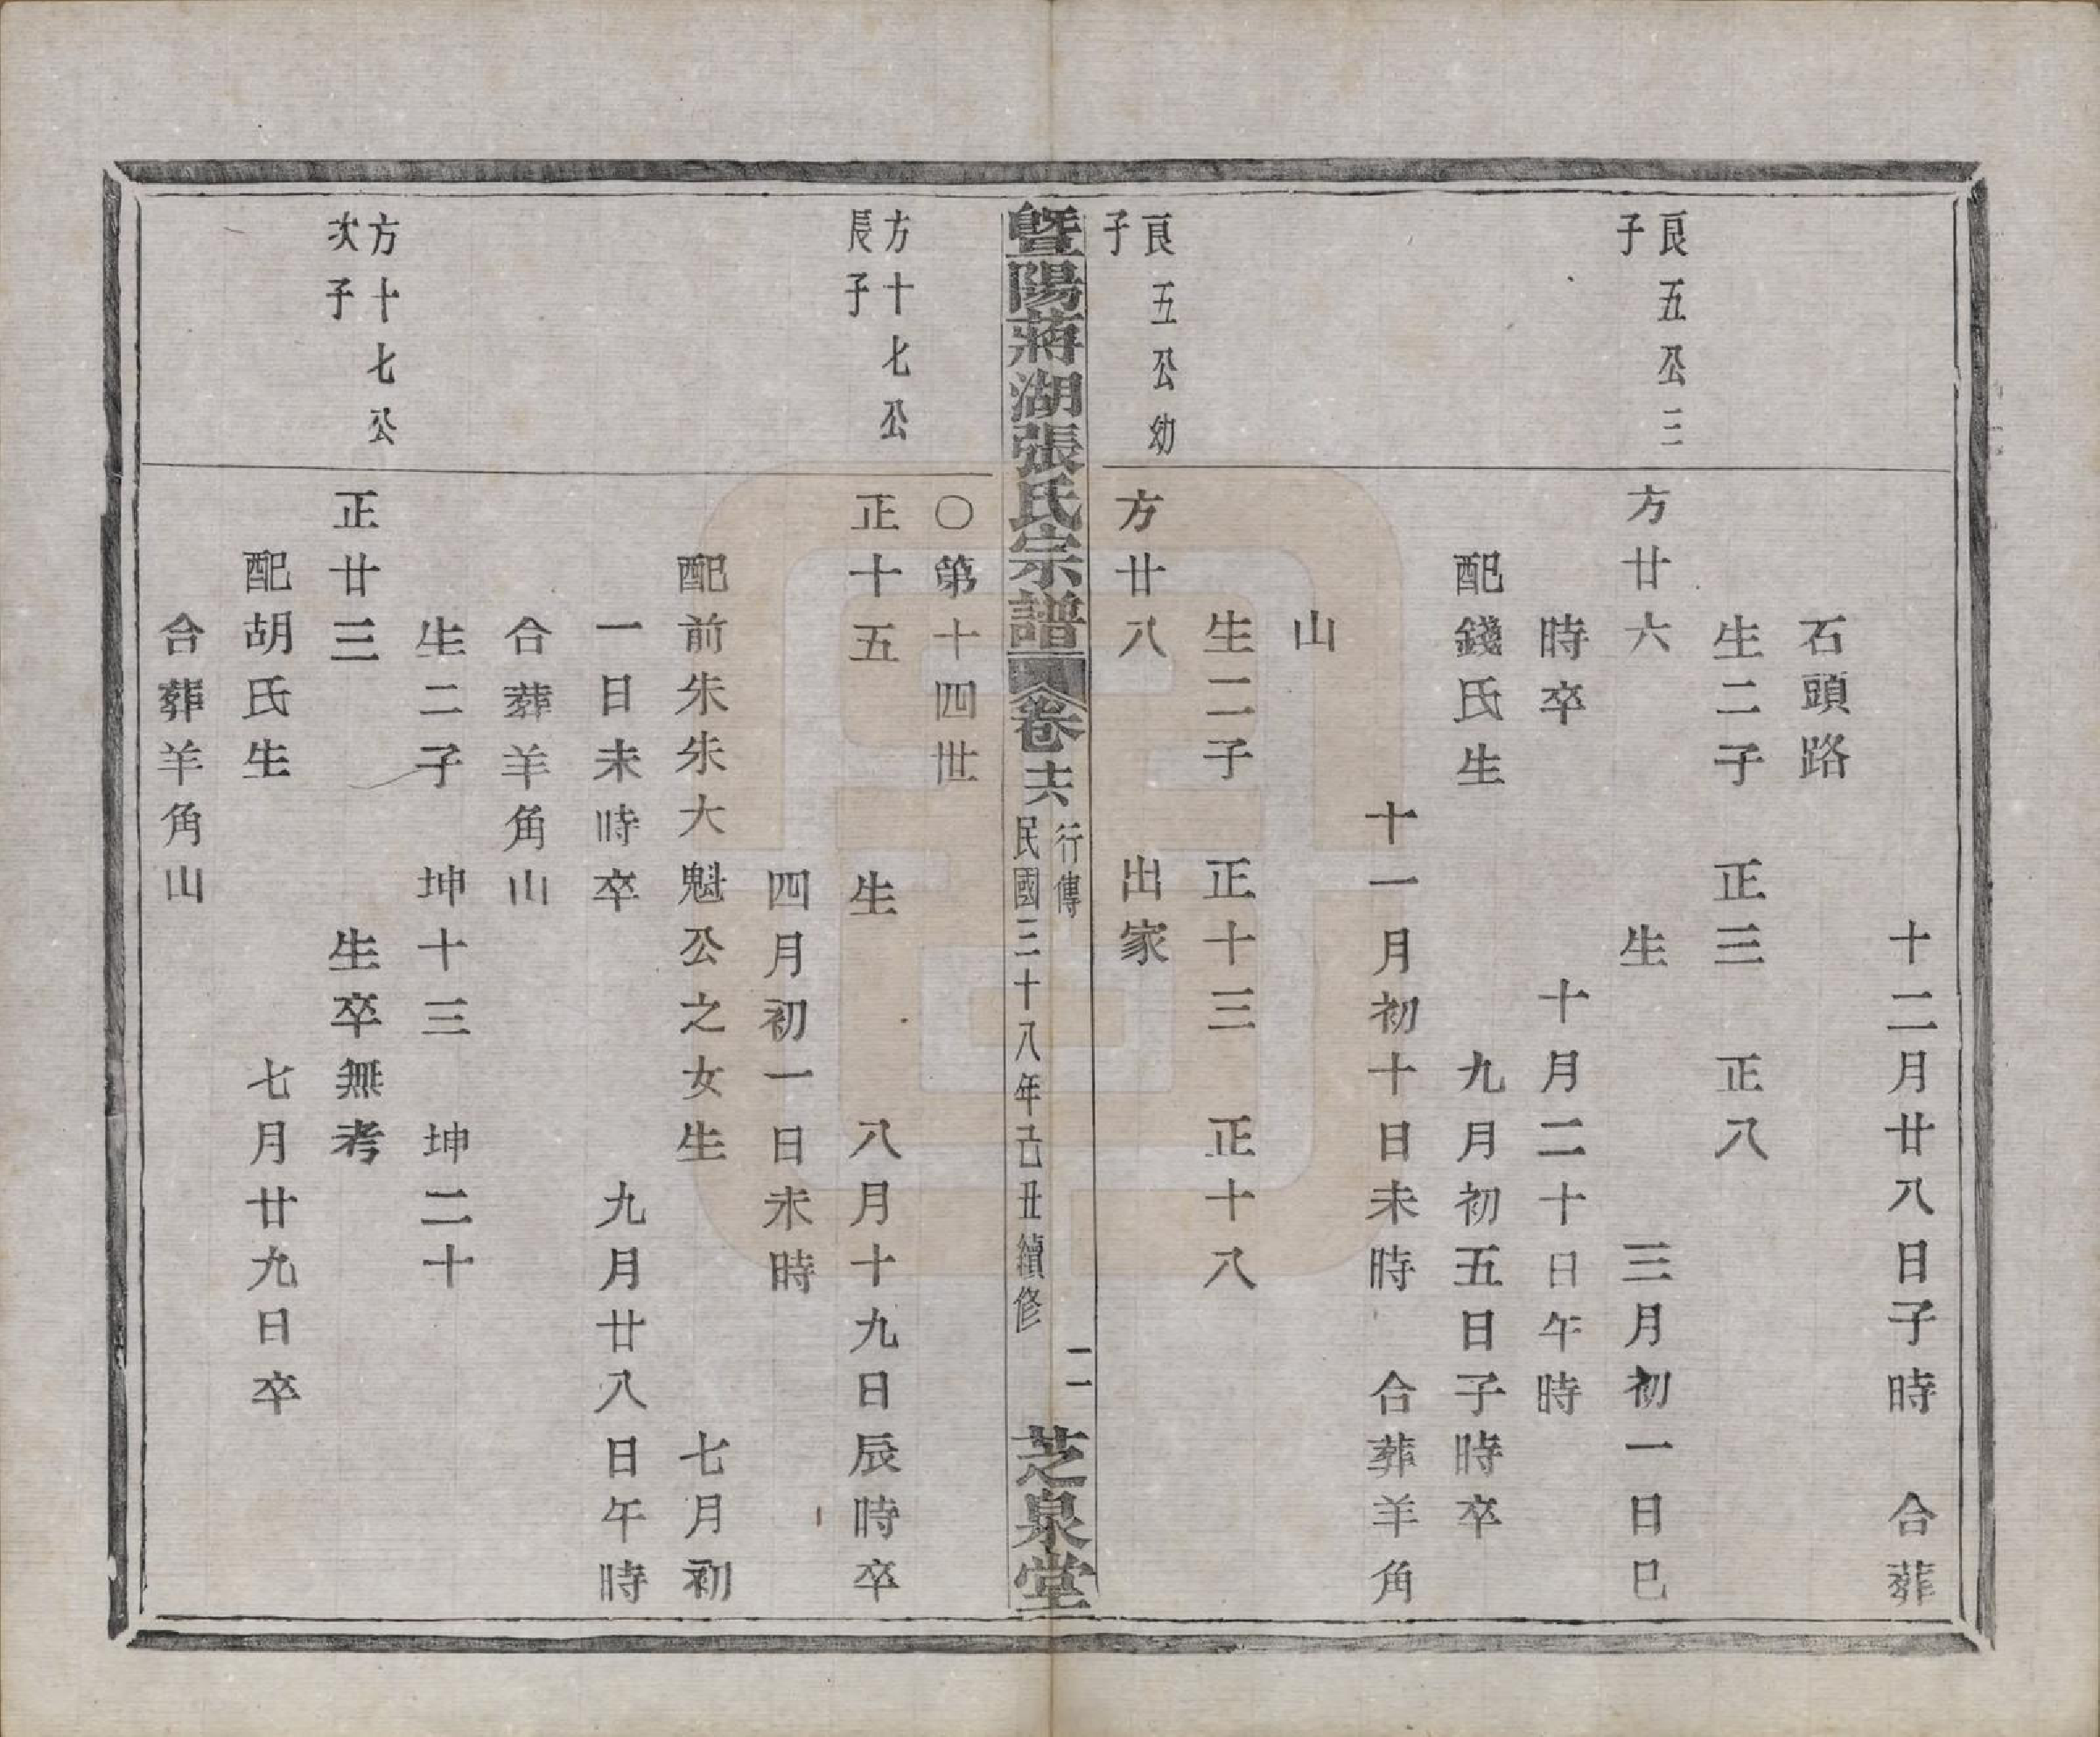 十二月廿八日子時　合葬
石頭路
生二子　正三　正八
良五公三
子
方廿六　生　三月初一日巳
時卒　十月二十日午時
配錢氏生　九月初五日子時卒
十一月初十日未時　合葬羊角
山
生二子　正十三　正十八
良五公幼
子
方廿八　出家
暨陽蔣湖張氏宗譜　卷十六　行傳　民國三十八年己丑續修　二　芝泉堂
〇第十四世
方十七公
長子
正十五　生　八月十九日辰時卒
四月初一日未時
配前朱朱大魁公之女生　七月初
一日未時卒　九月廿八日午時
合葬羊角山
生二子　坤十三　坤二十
方十七公
次子
正廿三　生卒無考
配胡氏生　七月廿九日卒
合葬羊角山